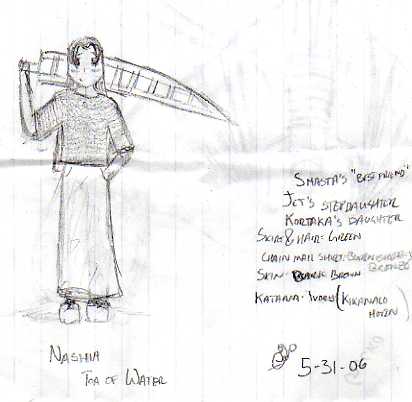 NASHIA
TOA OF WATER
SHASTA'S "BEST FRIEND"
JET'S STEPDAUGHTER
KORTAKA'S DAUGHTER
SKIRT & HAIR: GREEN
CHAIN MAIL SHIRT:
BRONZE
SKIN: BROWN
KATANA: IVORY (KIKANALO
5-31-06